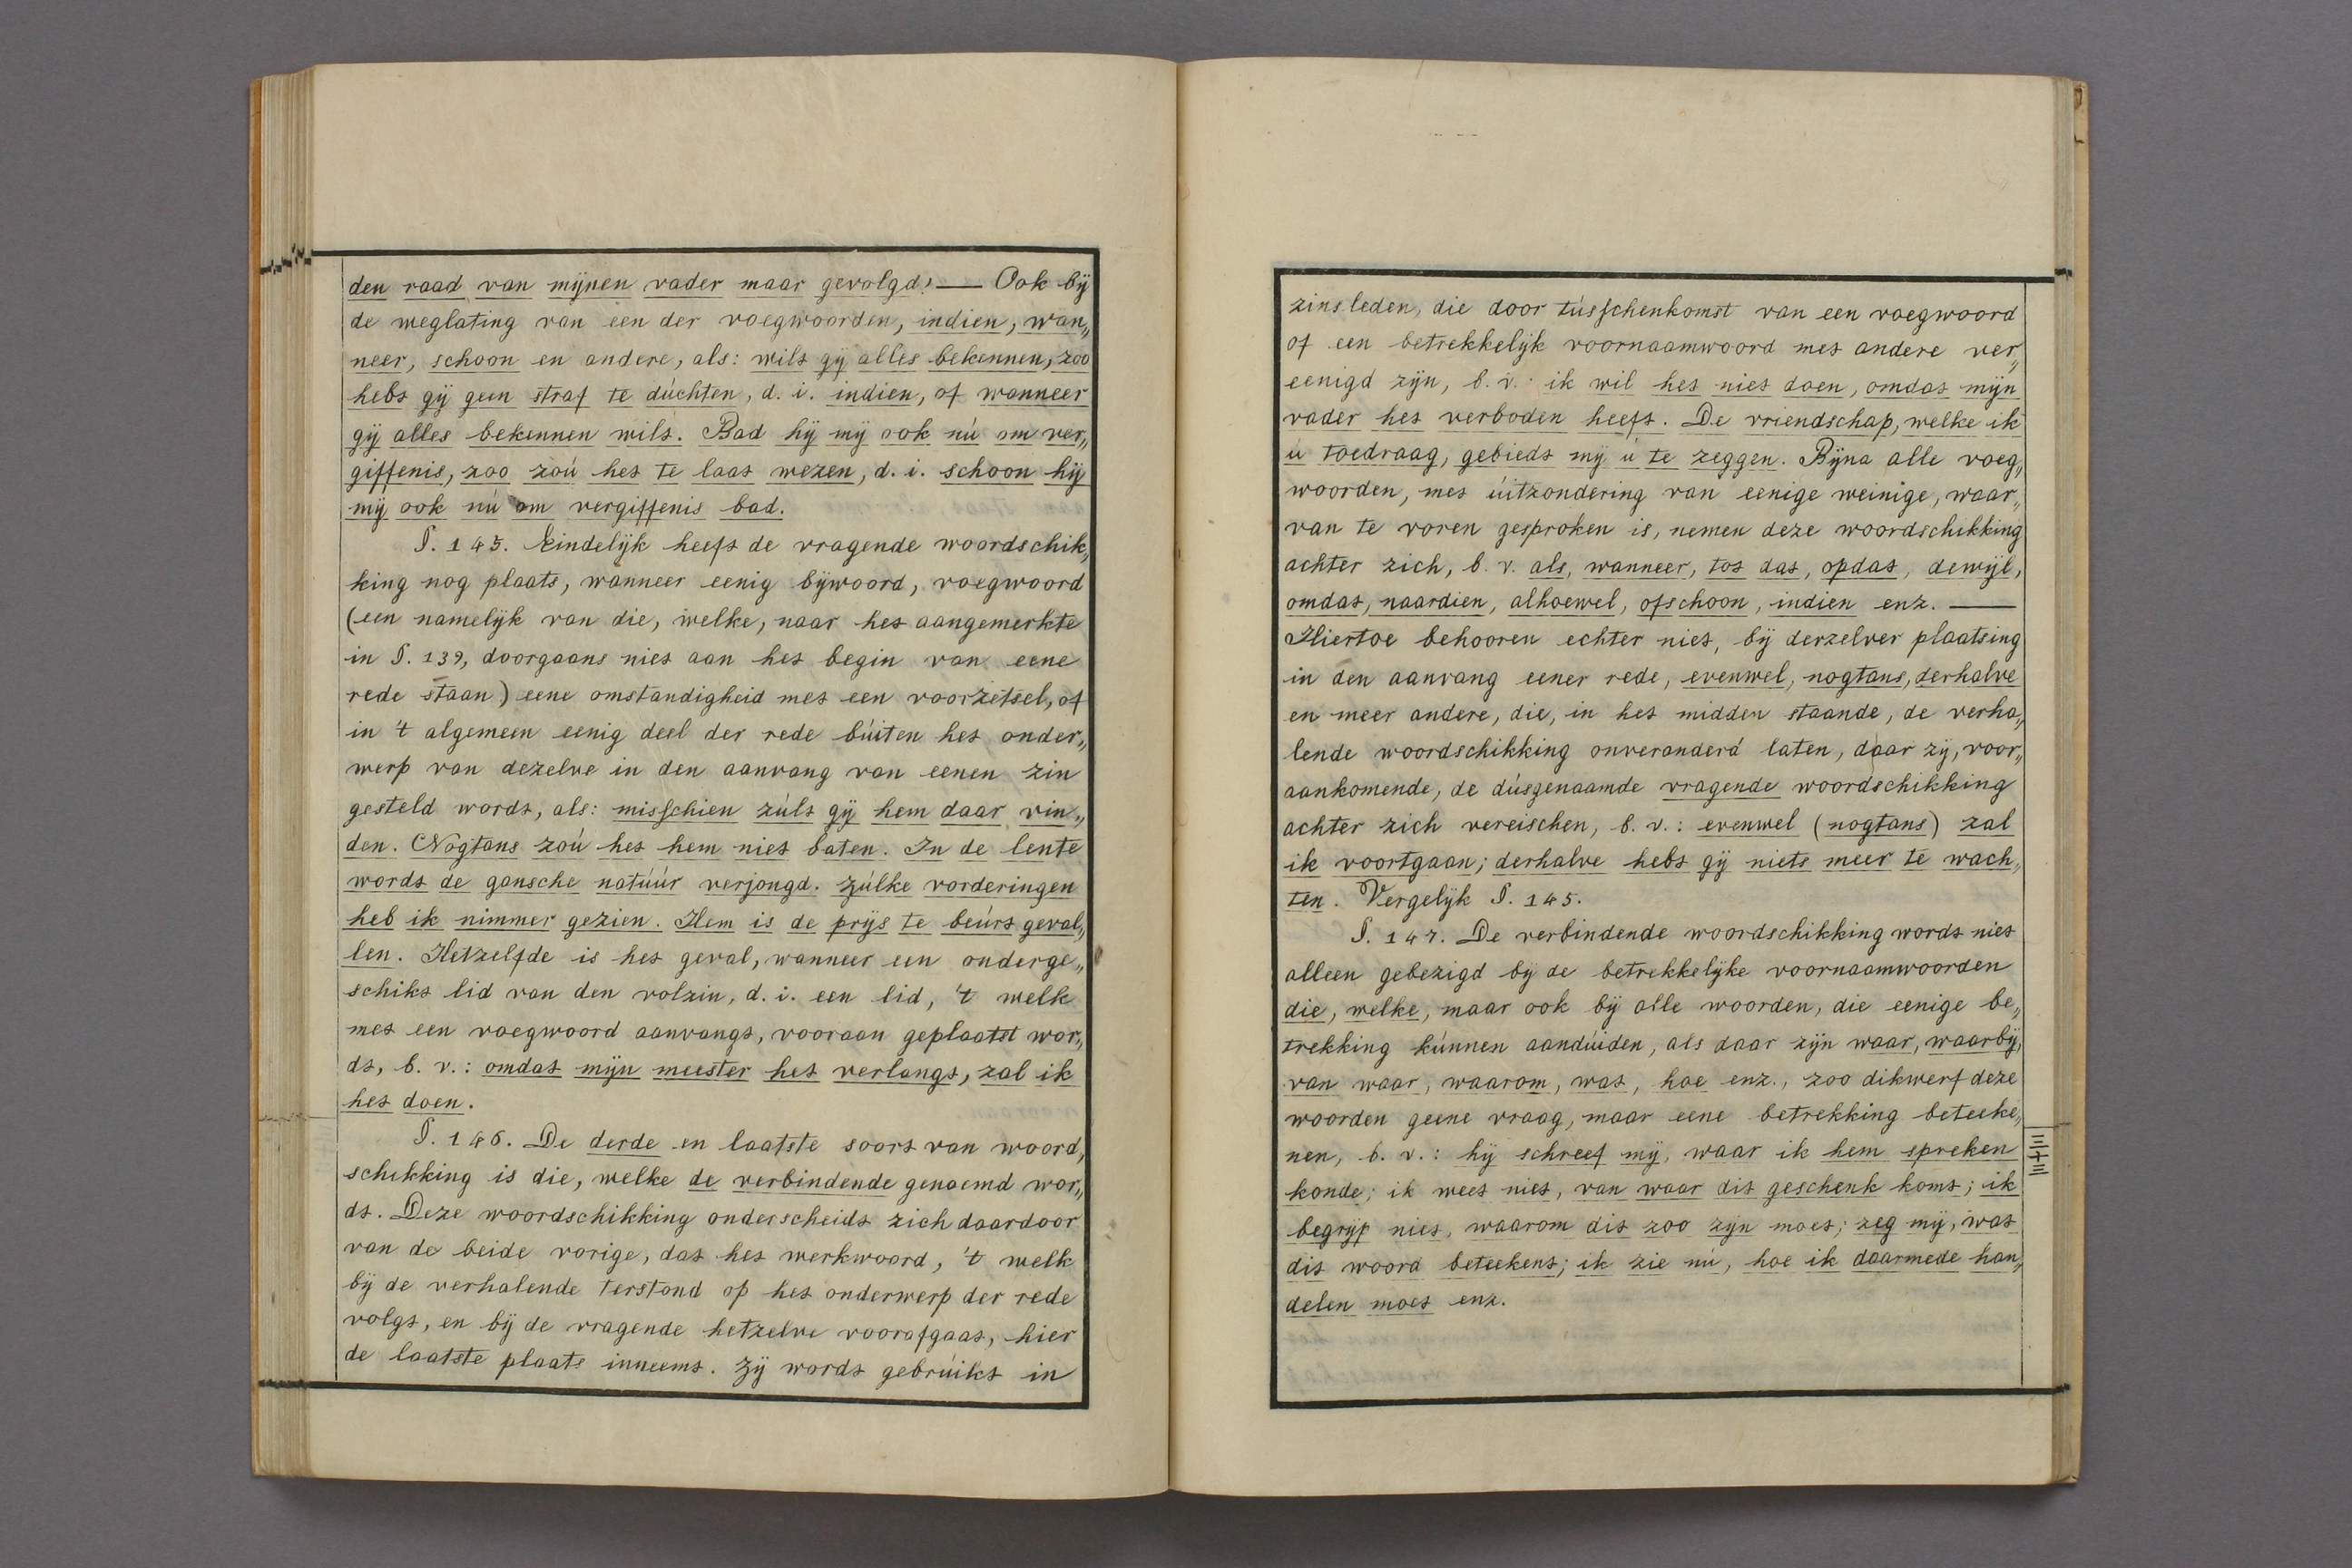 den raad van mijnen vader maar gevolgd! — Ook bij
de weglating van een der voegwoorden, indien, wan„
neer, schoon en andere, als: wilt gij alles bekennen, zoo
hebt gij geen straf te dúchten, d. i. indien, of wanneer
gij alles bekennen wilt. Bad hij mij ook nú om ver„
giffenis, zoo zoú het te laat wezen, d. i. schoon hij
mij ook nú om vergiffenis bad.
§. 145. Eindelijk heeft de vragende woordschik„
king nog plaats, wanneer eenig bijwoord, voegwoord
(een namelijk van die, welke, naar het aangemerkte
in §. 139, doorgaans niet aan het begin van eene
rede staan) eene omstandigheid met een voorzetsel, of
in 't algemeen eenig deel der rede búiten het onder„
werp van dezelve in den aanvang van eenen zin
gesteld wordt, als: misschien zúlt gij hem daar vin„
den. Nogtans zoú het hem niet baten. In de lente
wordt de gansche natúúr verjongd. Zúlke vorderingen
heb ik nimmer gezien. Hem is de prijs te beúrt geval„
len. Hetzelfde is het geval, wanneer een onderge„
schikt lid van den volzin, d. i. een lid, 't welk
met een voegwoord aanvangt, vooraan geplaatst wor„
dt, b. v.: omdat mijn meester het verlangt, zal ik
het doen.
§. 146. De derde en laatste soort van woord„
schikking is die, welke de verbindende genoemd wor„
dt. Deze woordschikking onderscheidt zich daardoor
van de beide vorige, dat het werkwoord, 't welk
bij de verhalende terstond op het onderwerp der rede
volgt, en bij de vragende hetzelve voorafgaat, hier
de laatste plaats inneemt. Zij wordt gebrúikt in
zinsleden, die door tússchenkomst van een voegwoord
of een betrekkelijk voornaamwoord met andere ver„
eenigd zijn, b. v.: ik wil het niet doen, omdat mijn
vader het verboden heeft. De vriendschap, welke ik
ú toedraag, gebiedt mij ú te zeggen. Bijna alle voeg„
woorden, met úitzondering van eenige weinige, waar„
van te voren gesproken is, nemen deze woordschikking
achter zich, b. v. als, wanneer, tot dat, opdat, dewijl,
omdat, naardien, alhoewel, ofschoon, indien enz. —
Hiertoe behooren echter niet, bij derzelver plaatsing
in den aanvang eener rede, evenwel, nogtans, derhalve
en meer andere, die, in het midden staande, de verha„
lende woordschikking onveranderd laten, daar zij, voor„
aankomende, de dúsgenaamde vragende woordschikking
achter zich vereischen, b. v.: evenwel (nogtans) zal
ik voortgaan; derhalve hebt gij niets meer te wach„
ten. Vergelijk §. 145.
§. 147. De verbindende woordschikking wordt niet
alleen gebezigd bij de betrekkelijke voornaamwoorden
die, welke, maar ook bij alle woorden, die eenige be„
trekking kúnnen aandúiden, als daar zijn waar, waarbij,
van waar, waarom, wat, hoe enz., zoo dikwerf deze
woorden geene vraag, maar eene betrekking beteeke„
nen, b. v.: hij schreef mij, waar ik hem spreken
konde; ik weet niet, van waar dit geschenk komt; ik
begrijp niet, waarom dit zoo zijn moet; zeg mij, wat
dit woord beteekent; ik zie nú, hoe ik daarmede han„
delen moet enz.
三十三